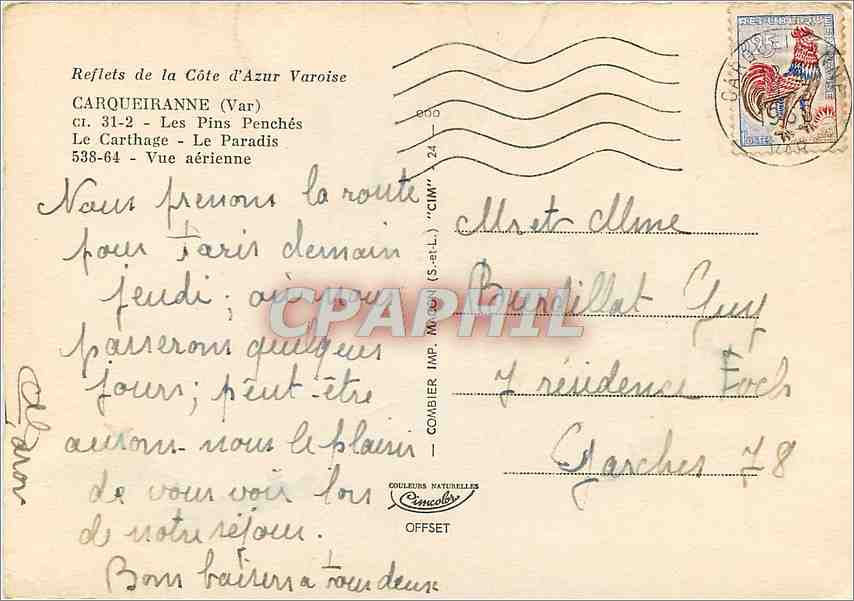 Reflets de la Côte d'Azur Varoise
CARQUEIRANNE (Var)
CI. 31-2 - Les Pins Penchés
Le Carthage - Le Paradis
538-64 - Vue aérienne
Nous prenons la route
pour Paris demain
jeudi ; où nous
passerons quelques
jours ; peut-être
aurons-nous le plaisir
de vous voir lors
de notre séjour.
Bons baisers a tous deux
COMBIER IMP. MACON (S.-et-L.) "CIM" - 24 -
COULEURS NATURELLES
Cimcolor
OFFSET
REPUBLIQUE
0,25
Mr et Mme
Burdillat Guy
7 résidence Foch
Garches 78
CPAPHIL